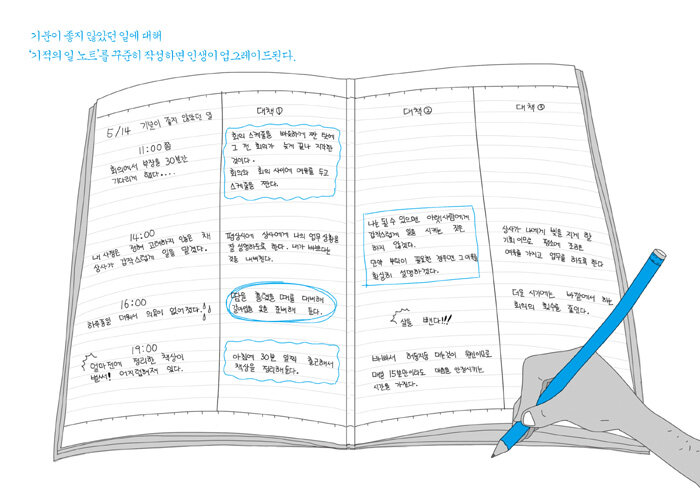 기분이 좋지 않았던 일에 대해
'기적의 일 노트'를 꾸준히 작성하면 인생이 업그레이드된다.
5/14 기분이 좋지 않았던 일
11:00
회의에서 부장을 30분간
기다리게 했다....
14:00
내 사정은 전혀 고려하지 않은 채
상사가 갑작스럽게 일을 맡겼다.
16:00
하루종일 더워서 의욕이 없어졌다.
19:00
얼마전에 정리한 책상이
벌써! 어지럽혀져 있다.
대책①
회의 스케줄을 빠듯하게 짠 탓에
그 전 회의가 늦게 끝나 지각한
것이다.
회의와 회의 사이에 여유를 두고
스케줄을 짠다.
평상시에 상사에게 나의 업무 상황을
잘 설명하도록 한다. 내가 바쁘다는
것을 내비친다.
땀을 흘렸을 때를 대비해
갈아입을 옷을 준비해 둔다.
아침에 30분 일찍 출근해서
책상을 정리해둔다.
대책②
나는 될 수 있으면 아랫사람에게
갑작스럽게 일을 시키는 것은
하지 않겠다.
만약 부탁이 필요한 경우면 그 이유를
확실히 설명하겠다.
살을 뺀다!!!
바빠서 허둥지둥 대는것이 원인이므로
매일 15분만이라도 마음을 안정시키는
시간을 가진다.
대책③
상사가 나에게 빚을 지게 할
기회이므로 평소에 조금은
여유를 가지고 업무를 하도록 한다
더운 시기에는 바깥에서 하는
회의의 횟수를 줄인다.